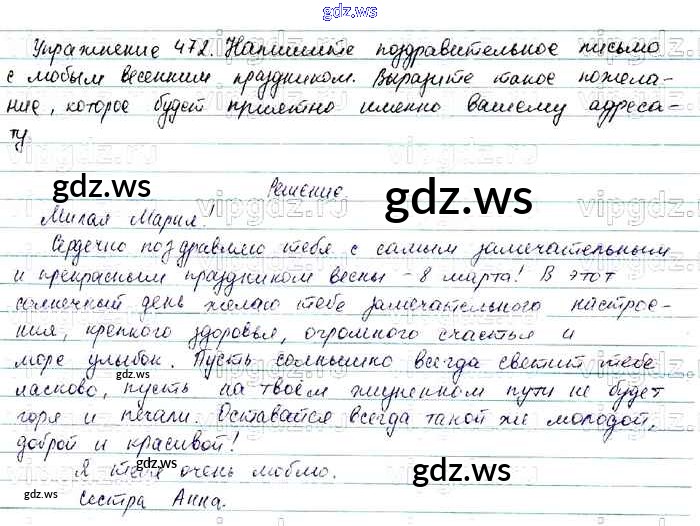 gdz.ws
Упражнение 472. Напишите поздравительное письмо
с любым весенним праздником. Выразите такое пожела-
ние, которое будет приятно именно вашему адреса-
ту.
Решение.
gdz.ws
gdz.ws
Милая Мария!
Сердечно поздравляю тебя с самым замечательным
и прекрасным праздником весны - 8 марта! В этот
солнечный день желаю тебе замечательного настрое-
ния, крепкого здоровья, огромного счастья и
море улыбок. Пусть солнышко всегда светит тебе
gdz.ws
ласково, пусть на твоём жизненном пути не будет
горя и печали. Оставайся всегда такой же молодой,
доброй и красивой!
Я тебя очень люблю.
gdz.ws
gdz.ws
Сестра Анна.
gdz.ws